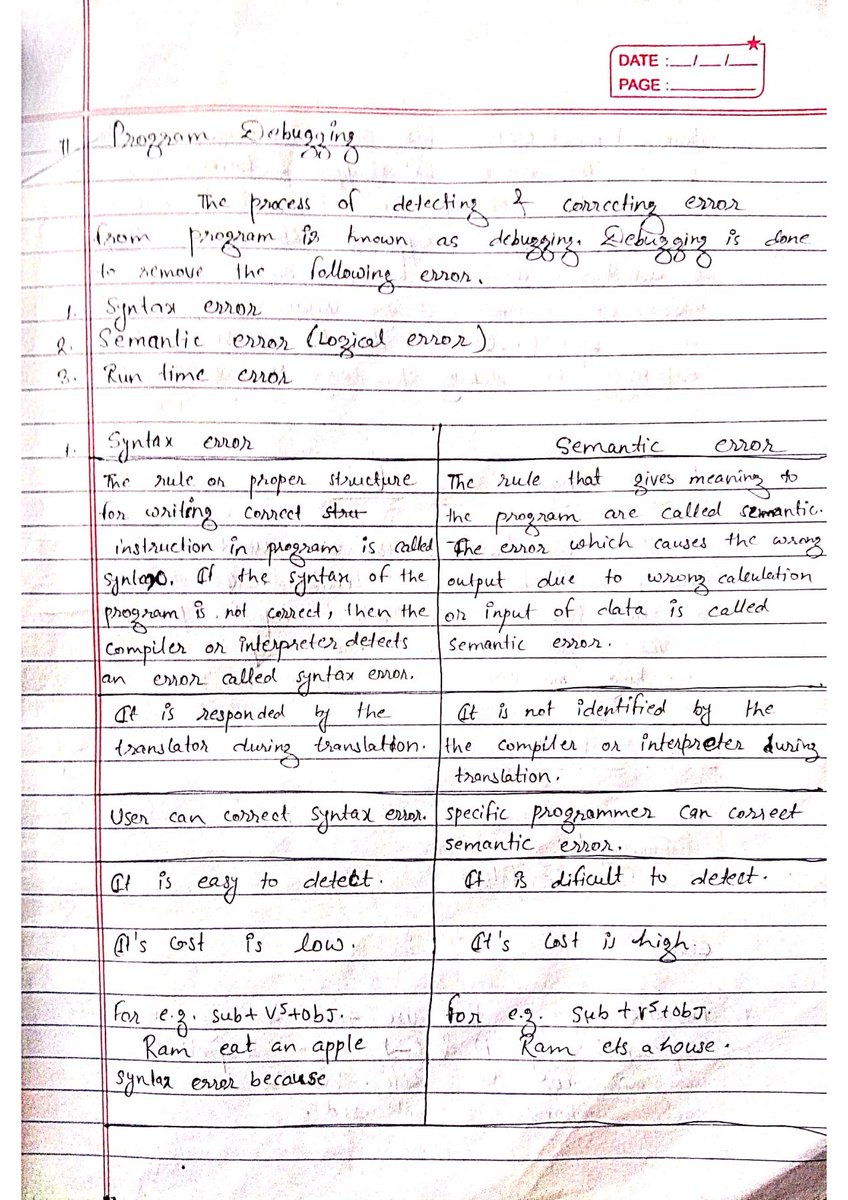 DATE :__/__/__
PAGE :______
11 Program Debugging
The process of detecting & correcting error
from program is known as debugging. Debugging is done
to remove the following error.
1. Syntax error
2. Semantic error (Logical error)
3. Run time error
1. Syntax error
The rule or proper structure
for writing correct stret
instruction in program is called
syntax. If the syntax of the
program is not correct, then the
compiler or interpreter detects
an error called syntax error.
It is responded by the
translator during translation.
User can correct syntax error.
It is easy to detect.
It's cost is low.
For e.g. sub+ V⁵+obJ.
Ram eat an apple
syntax error because
Semantic error
The rule that gives meaning to
the program are called semantic.
The error which causes the wrong
output due to wrong calculation
or input of data is called
semantic error.
It is not identified by the
the compiler or interpreter during
translation.
specific programmer can correct
semantic error.
It is dificult to detect.
It's cost is high.
for e.g. Sub + V⁵+obJ.
Ram ets a house.